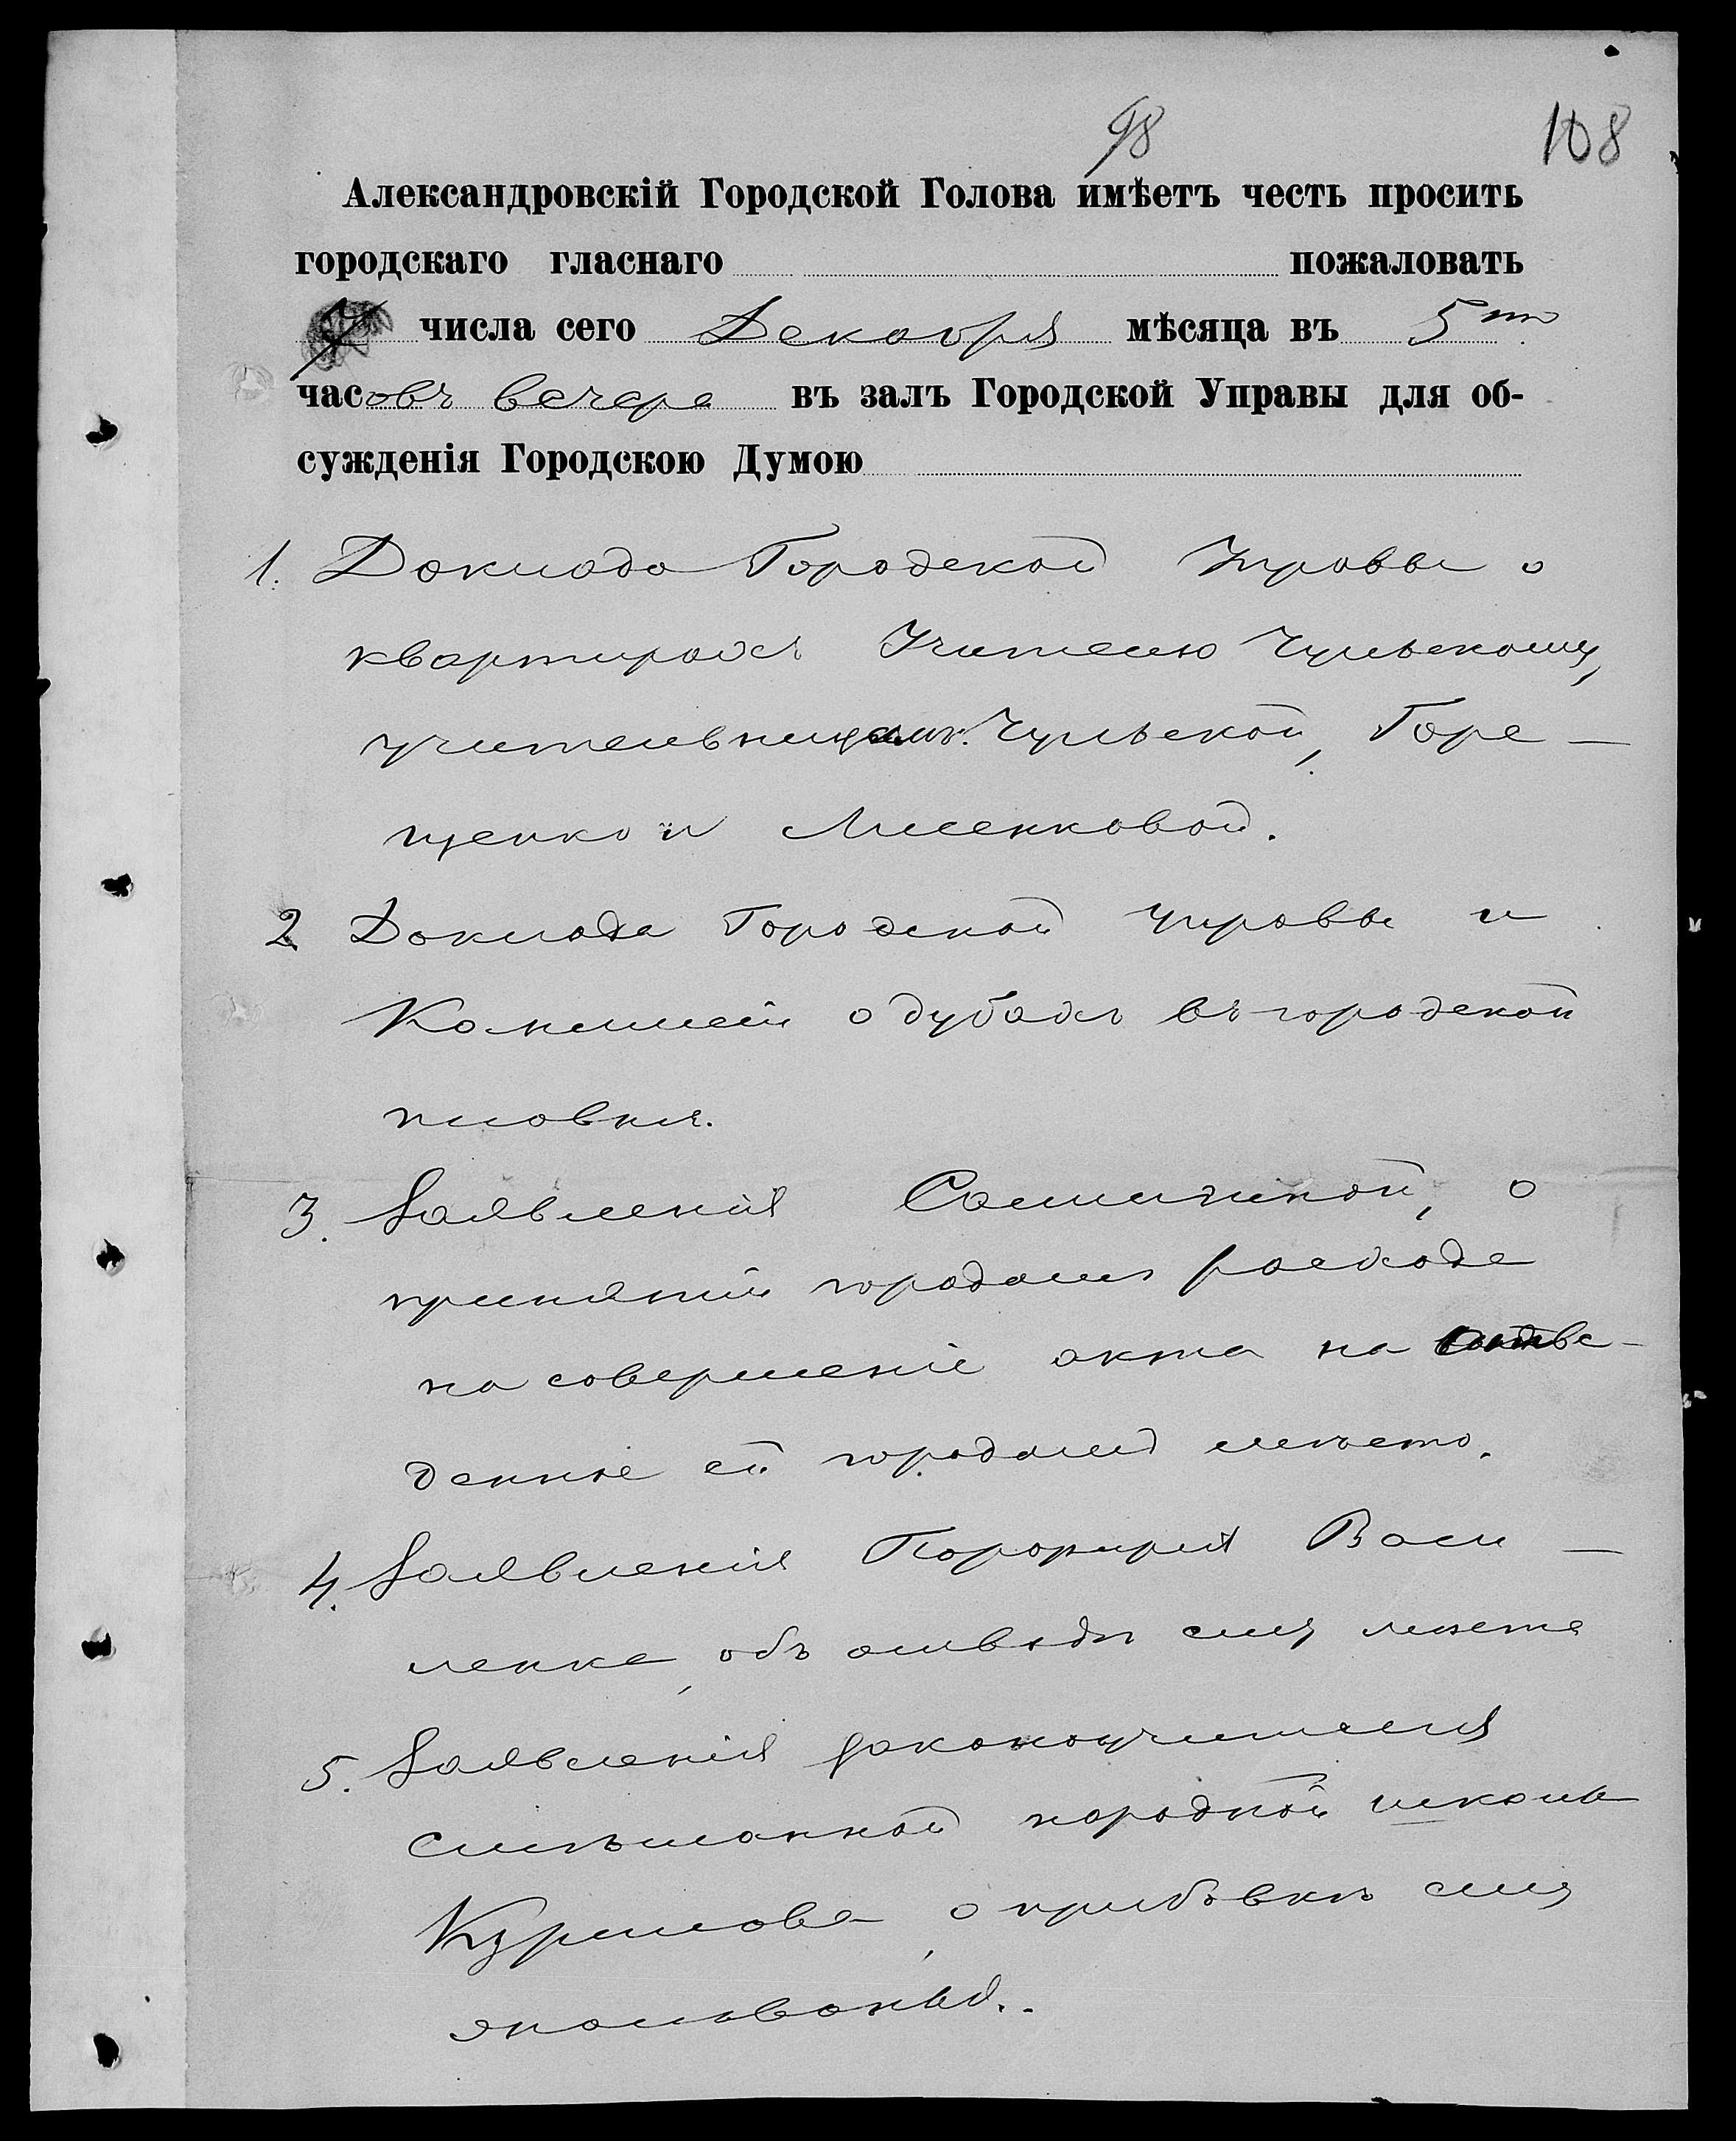 98 108
Александровскій Городской Голова имѣетъ честь просить
городскаго гласнаго пожаловать
7 числа сего Декабря мѣсяца въ 5ти
часовъ вечера въ залъ Городской Управы для об-
сужденія Городскою Думою
1. Доклада Городской Управы о
квартирахъ Учителю Чульскому,
учительницамъ Чульской, Горе-
щенко и Лисенковой.
2 Доклада Городской Управы и
Комиссіи о дубахъ въ городской
плавнѣ.
3. Заявленія о
принятіи городомъ расхода
на совершеніе акта на отве-
денное ей городомъ мѣсто.
4. Заявленія Порфирія Васи-
ленка, объ отводѣ ему мѣста
5. Заявленія законоучителя
смѣшанной народной школы
Курилова, о прибавкѣ ему
жалованья.